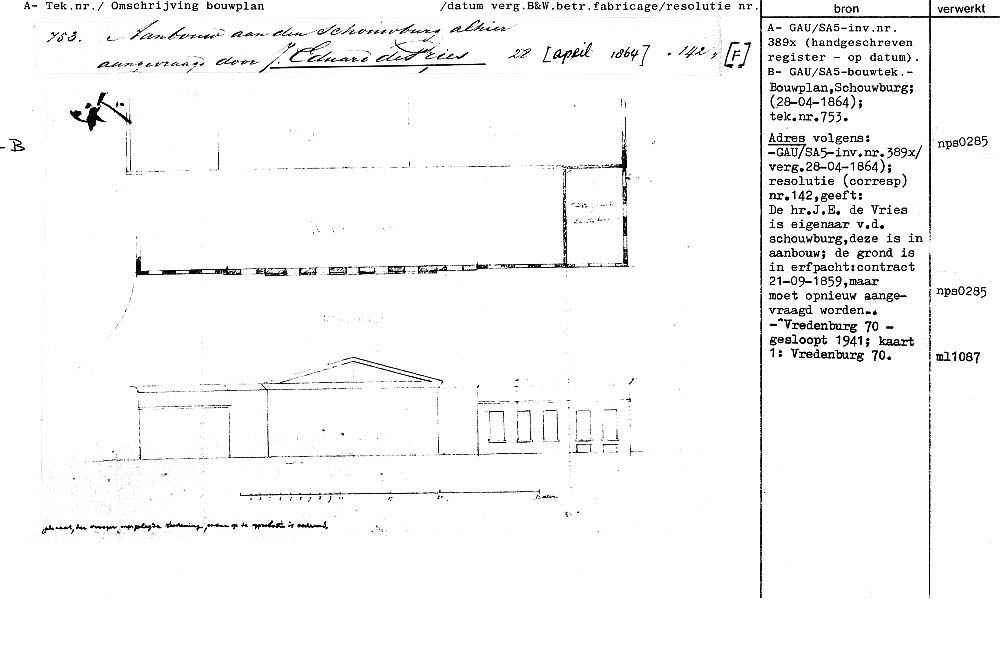 A- Tek.nr./ Omschrijving bouwplan /datum verg.B&W.betr.fabricage/resolutie nr.
bron
verwerkt
753. Aanbouw aan den Schouwburg alhier
aangevraagd door J. Eduard de Vries 28 [april 1864] . 142, [F]
- B
A- GAU/SA5-inv.nr.
389x (handgeschreven
register - op datum).
B- GAU/SA5-bouwtek.-
Bouwplan,Schouwburg;
(28-04-1864);
tek.nr.753.
Adres volgens:
-GAU/SA5-inv.nr.389x/
verg.28-04-1864);
resolutie (corresp)
nr.142,geeft:
De hr.J.E. de Vries
is eigenaar v.d.
schouwburg,deze is in
aanbouw; de grond is
in erfpacht:contract
21-09-1859,maar
moet opnieuw aange-
vraagd worden..
-^Vredenburg 70 -
gesloopt 1941; kaart
1: Vredenburg 70.
nps0285
nps0285
ml1087